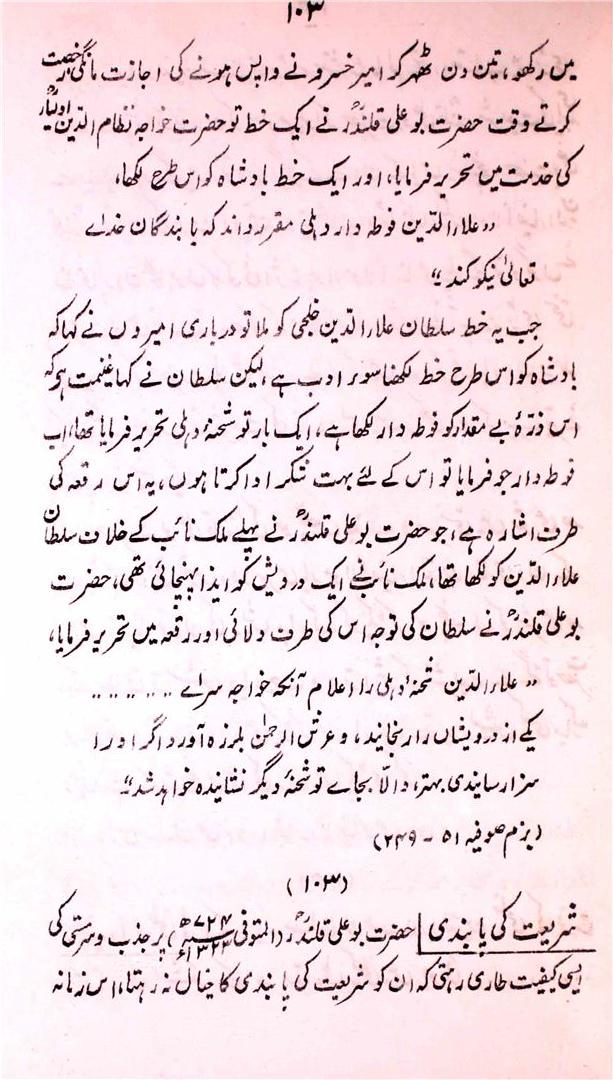 ۱۰۳
میں رکھو، تین دن ٹھہر کر امیر خسرو نے واپس ہونے کی اجازت مانگی، رخصت
کرتے وقت حضرت بوعلی قلندرؒ نے ایک خط تو حضرت خواجہ نظام الدین اولیاؒ
کی خدمت میں تحریر فرمایا، اور ایک خط بادشاہ کو اس طرح لکھا،
”علاء الدین فوطہ دار دہلی مقرر داند کہ با بندگان خداے
تعالیٰ نیکو کند“
جب یہ خط سلطان علاء الدین خلجی کو ملا تو درباری امیروں نے کہا کہ
بادشاہ کو اس طرح خط لکھنا سوء ادب ہے، لیکن سلطان نے کہا غنیمت ہو کہ
اس ذرۂ بے مقدار کو فوطہ دار لکھا ہے، ایک بار تو شحنۂ دہلی تحریر فرمایا تھا، اب
فوطہ دار جو فرمایا تو اس کے لئے بہت شکر ادا کرتا ہوں، یہ اس رقعہ کی
طرف اشارہ ہے، جو حضرت بوعلی قلندرؒ نے پہلے ملک نائب کے خلاف سلطان
علاء الدین کو لکھا تھا، ملک نائب نے ایک درویش کو ایذا پہنچائی تھی، حضرت
بوعلی قلندرؒ نے سلطان کی توجہ اس کی طرف دلائی اور رقعہ میں تحریر فرمایا،
”علاء الدین شحنۂ دہلی را اعلام آنکہ خواجہ سراے ۔۔ ۔۔ ۔۔ ۔۔ ۔۔
یکے از درویشاں را رنجانید، و عرش الرحمٰن بلرزہ آورد اگر او را
سزا رسانیدی بہتر، والّا بجاے تو شحنۂ دیگر نشانیدہ خواہد شد“
(بزم صوفیہ ۵۱ - ۲۴۹)
(۱۰۳)
شریعت کی پابندی حضرت بوعلی قلندرؒ (المتوفی ۷۲۴ھ ۱۳۲۳ء) پر جذب و سرمستی کی
ایسی کیفیت طاری رہتی کہ ان کو شریعت کی پابندی کا خیال نہ رہتا، اس زمانہ